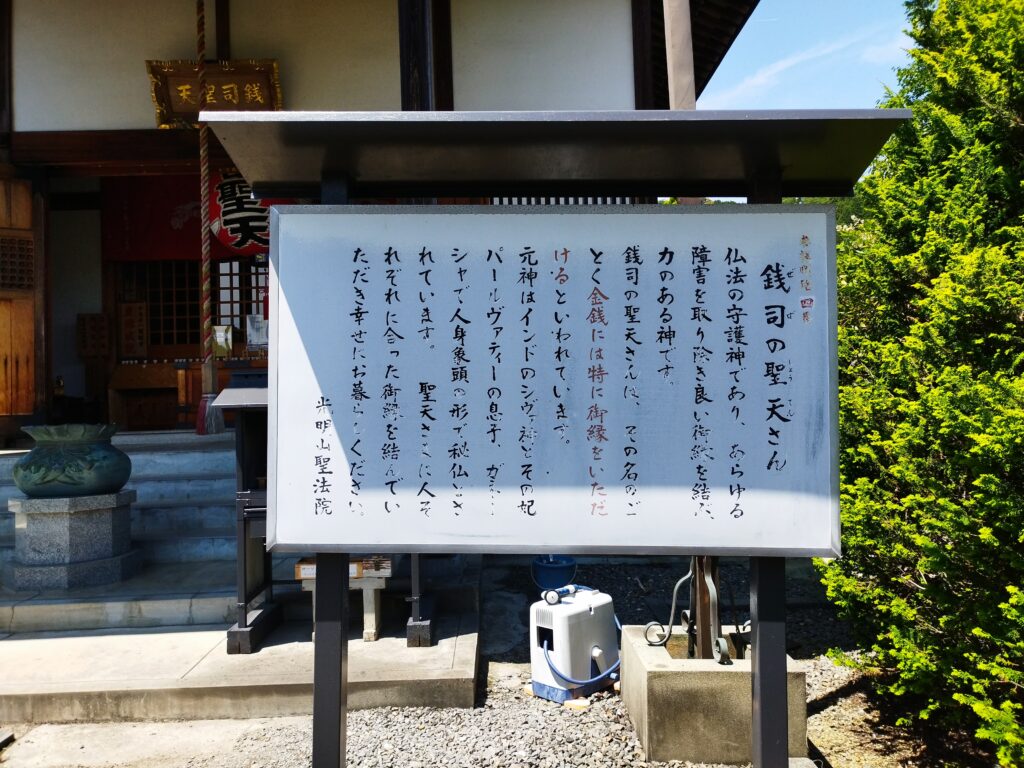 銭司聖天
聖天
四番
銭司の聖天さん
ぜ ず しょう てん
仏法の守護神であり、あらゆる
障害を取り除き良い御縁を結ぶ、
力のある神です。
銭司の聖天さんは、その名のご
とく金銭には特に御縁をいただ
けるといわれています。
元神はインドのシヴァ神とその妃
パールヴァティーの息子、ガネー
シャで人身象頭の形で秘仏とさ
れています。 聖天さまに人そ
れぞれに合った御縁を結んでい
ただき幸せにお暮らしください。
光明山聖法院